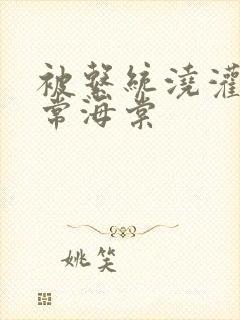 被繫統澆灌
常海棠
姚笑